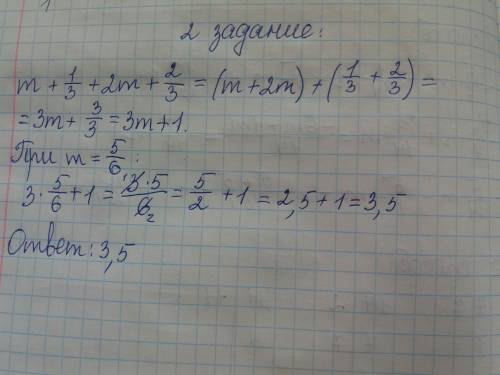 2 задание:
m + 1/3 + 2m + 2/3 = (m + 2m) + (1/3 + 2/3) =
= 3m + 3/3 = 3m + 1.
При m = 5/6 :
3 · 5/6 + 1 = 3 · 5/6 2 = 5/2 + 1 = 2,5 + 1 = 3,5
Ответ: 3,5